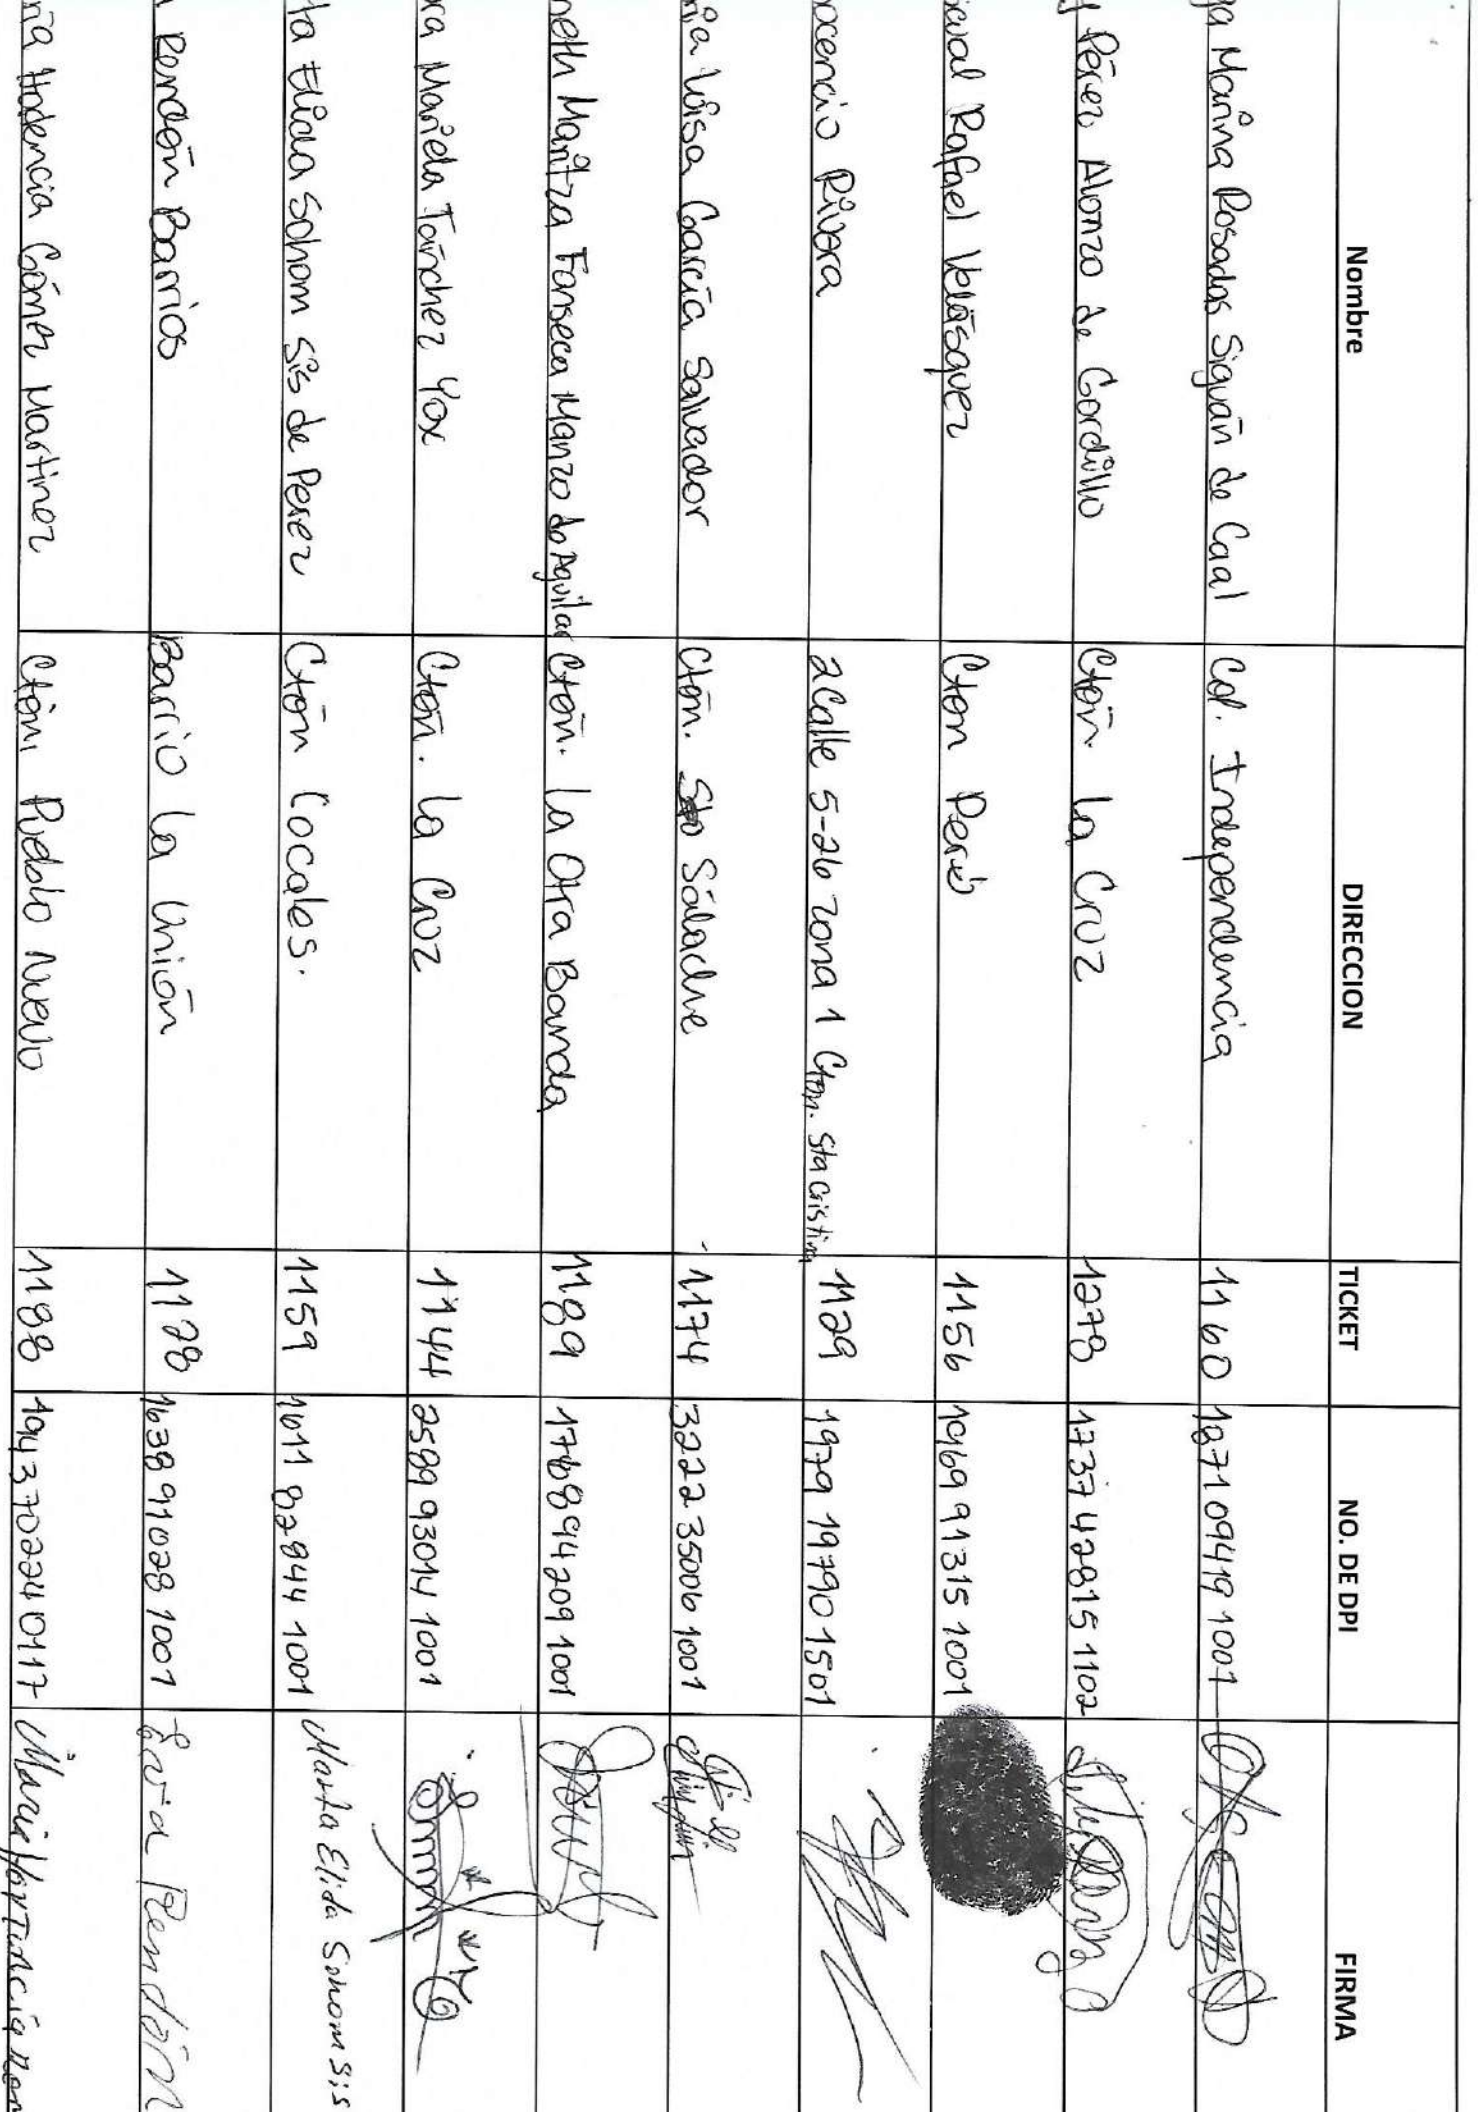 Nombre DIRECCION TICKET NO. DE DPI FIRMA
ga Marina Rosados Siguán de Caal Col. Independencia 1160 1871 09419 1001
y Pérez Alonzo de Gordillo Ctón. La Cruz 1278 1737 42815 1102
Rafael Velásquez Cton Perú 1156 1969 91315 1001
ocencio Rivera 2 Calle 5-26 zona 1 Cton. Sta Cristina 1129 1979 19790 1501
ria Luisa García Salvador Ctón. Sto 1174 3222 35006 1001
neth Maritza Fonseca Manzo de Aguilar Ctón. La Otra Banda 1189 1768 94209 1001
ra Mariela Tánchez Yox Ctón. La Cruz 1144 2589 93014 1001
ta Elida Sohom Sis de Perez Ctón Cocales. 1159 1611 82844 1001 Marta Elida Sohom Sis
Rendón Barrios Barrio La Unión 1178 1638 91028 1001 Rendón
ría Gómez Martinez Ctón Pueblo Nuevo 1188 1943 70224 0117